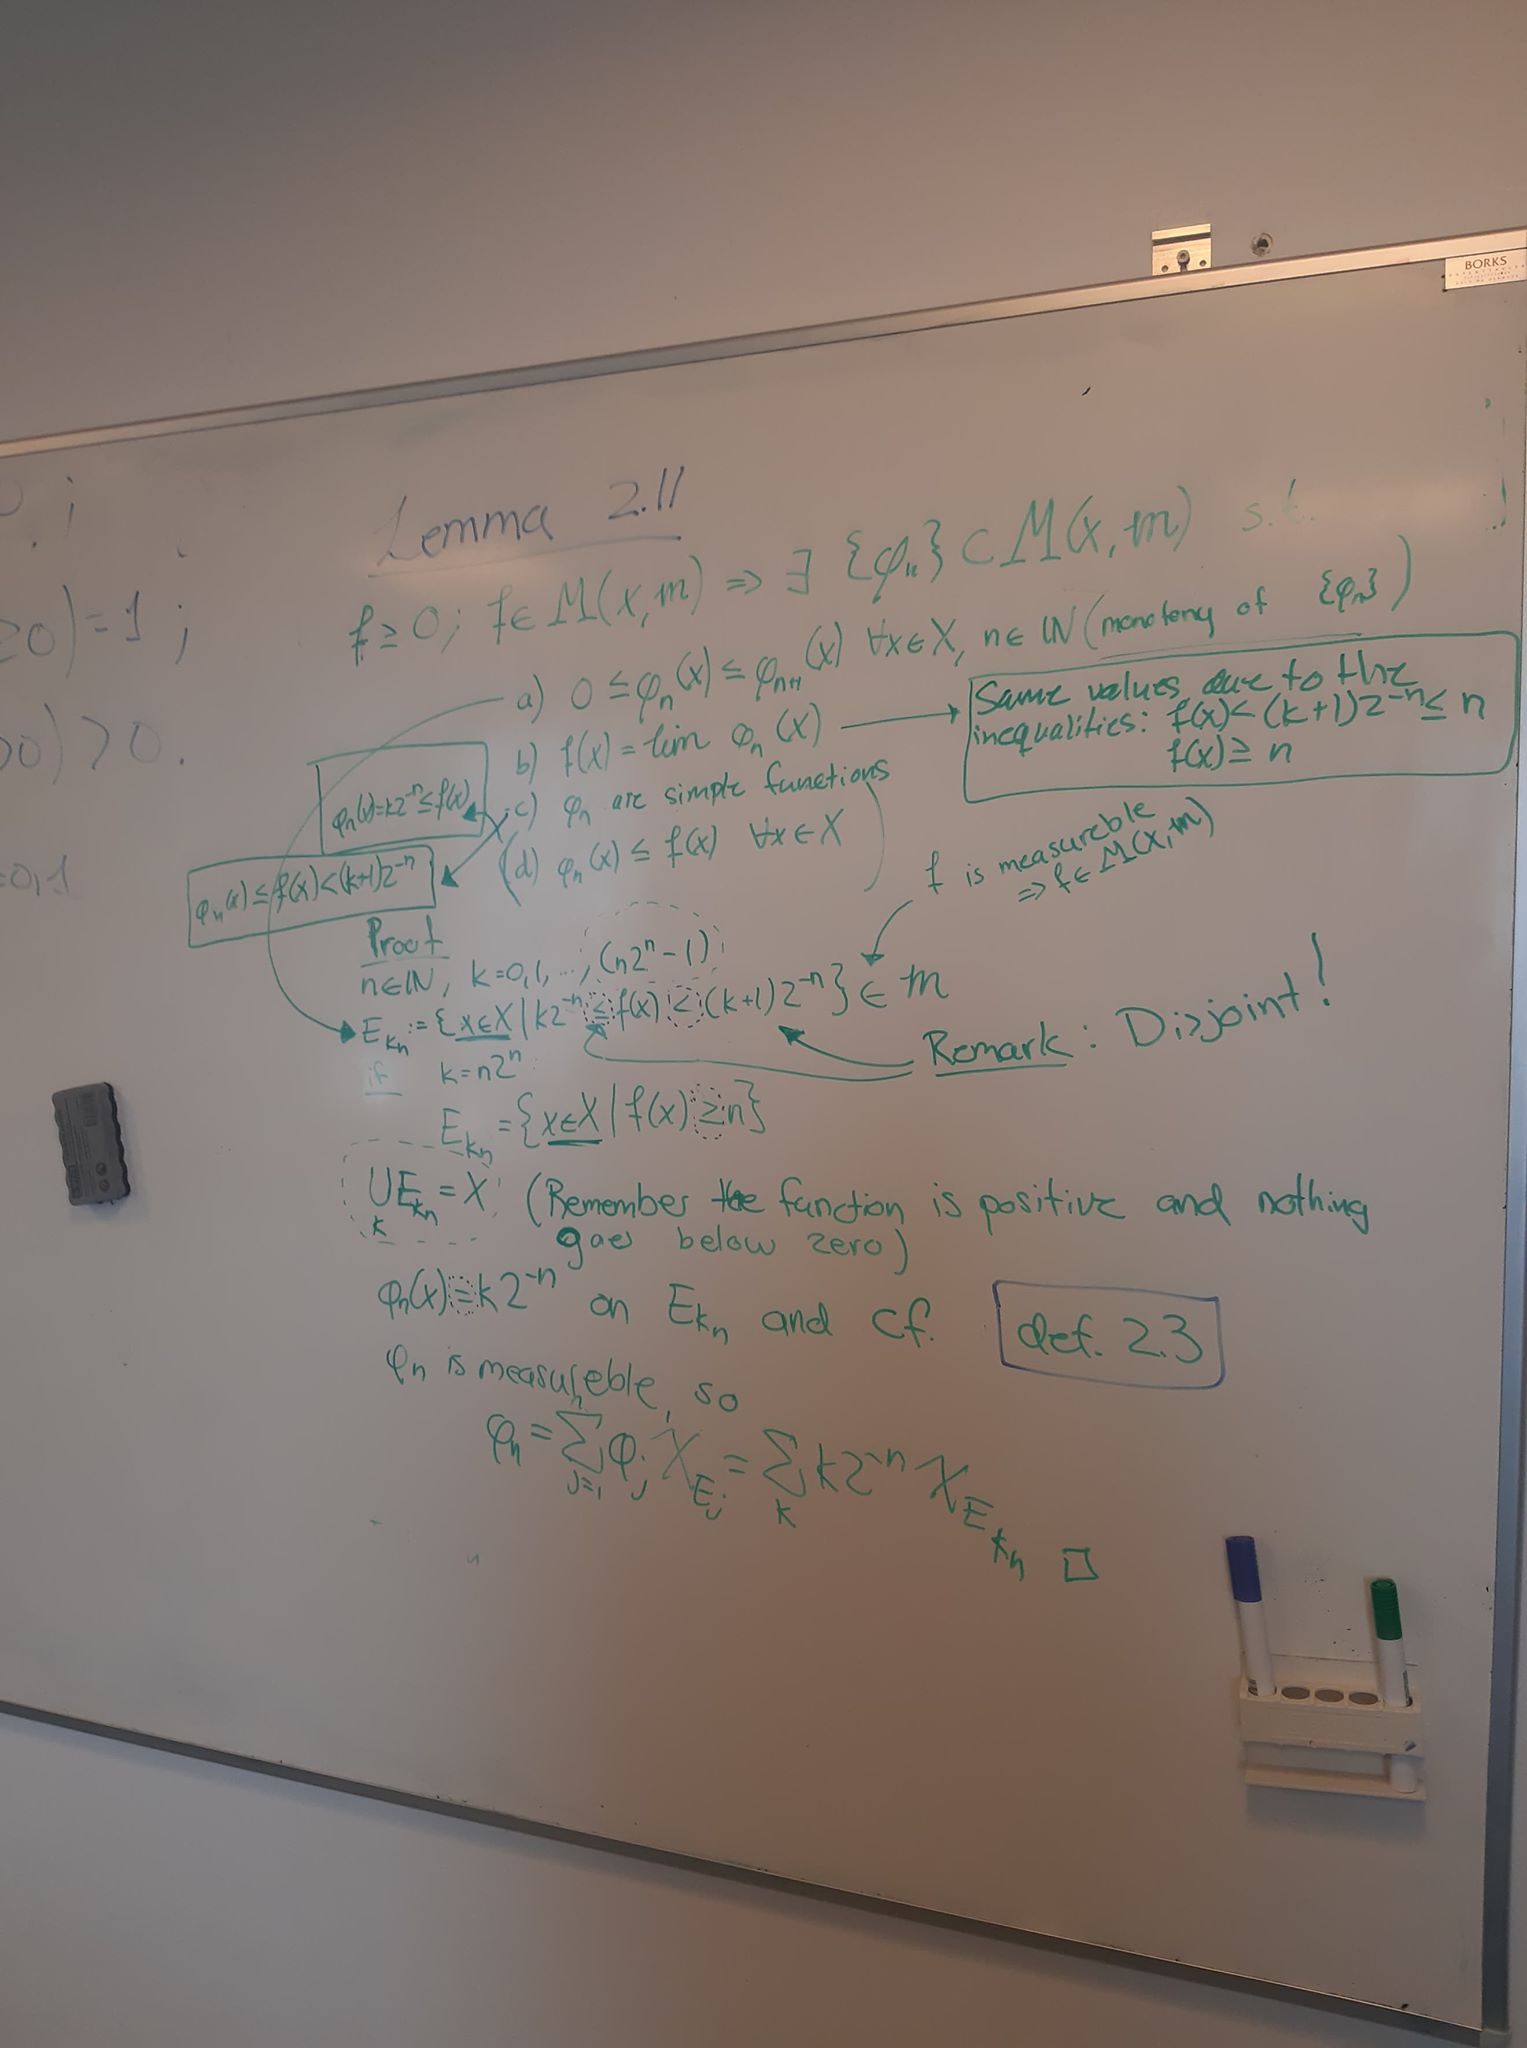 BORKS
0 ;
≥0) = 1 ;
>0) > 0.
=0,1
Lemma 2.11
f ≥ 0; f ∈ M(X, m) ⇒ ∃ {φₙ} ⊂ M(X, m) s.t.
a) 0 ≤ φₙ(x) ≤ φₙ₊₁(x) ∀x∈X, n∈ℕ (monotony of {φₙ})
b) f(x) = lim φₙ(x)
Same values due to the
inequalities: f(x) < (k+1)2⁻ⁿ ≤ n
f(x) ≥ n
c) φₙ are simple functions
(d) φₙ(x) ≤ f(x) ∀x∈X
φₙ(x) = k2⁻ⁿ ≤ f(x)
φₙ(x) ≤ f(x) < (k+1)2⁻ⁿ
f is measureble
⇒ f ∈ M(X, m)
Proof
n∈ℕ, k=0,1,..., (n2ⁿ-1)
Eₖₙ := {x∈X | k2⁻ⁿ ≤ f(x) < (k+1)2⁻ⁿ} ∈ m
Remark: Disjoint!
if k=n2ⁿ:
Eₖₙ = {x∈X | f(x) ≥ n}
∪ₖ Eₖₙ = X (Remember the function is positive and nothing
goes below zero)
φₙ(x) = k2⁻ⁿ on Eₖₙ and cf. def. 2.3
φₙ is measureble, so
φₙ = Σⁿⱼ₌₁ φⱼ χ_Eⱼ = Σₖ k2⁻ⁿ χ_Eₖₙ □